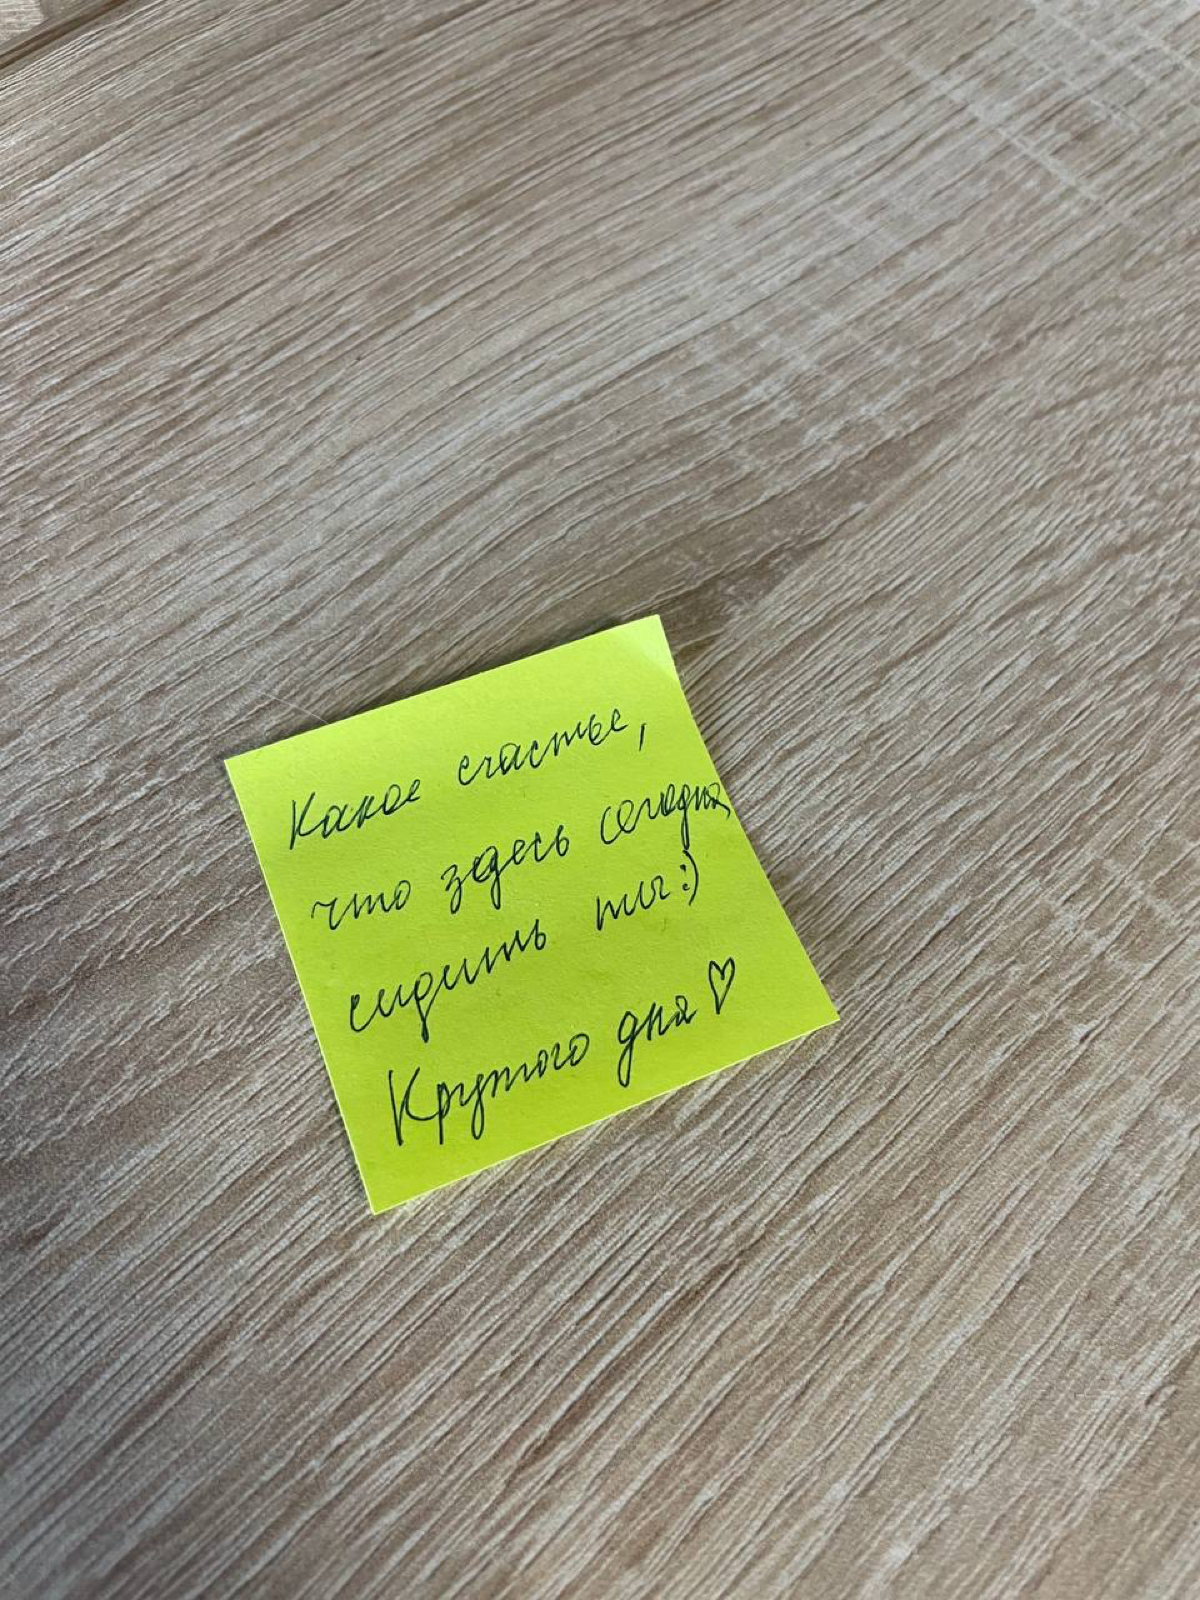 Какое счастье,
что здесь сегодня
сидишь ты:)
Крутого дня♡